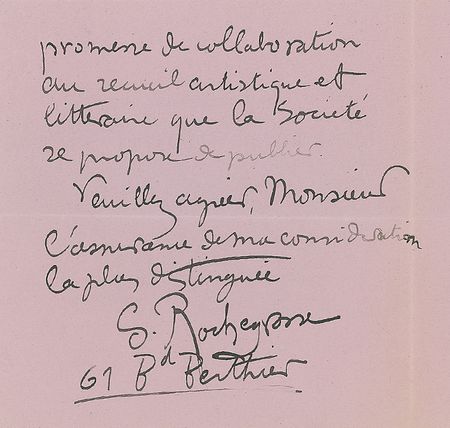 promesse de collaboration
au recueil artistique et
littéraire que la Société
se propose de publier.
Veuillez agréer, Monsieur
l'assurance de ma considération
la plus distinguée
G. Rochegrosse
61 Bd Berthier